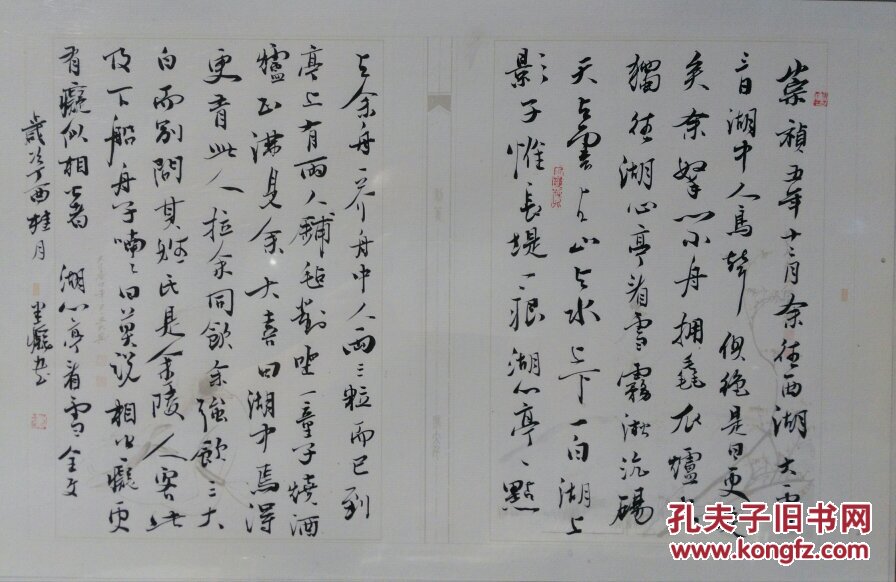 崇禎五年十二月余住西湖大雪
三日湖中人鳥聲俱絕是日更定
矣余拏一小舟擁毳衣爐火
獨往湖心亭看雪霧淞沆碭
天與雲與山與水上下一白湖上
影子惟長堤一痕湖心亭一點
與余舟一芥舟中人兩三粒而已到
亭上有兩人鋪氈對坐一童子燒酒
爐正沸見余大喜曰湖中焉得
更有此人拉余同飲余強飲三大
白而別問其姓氏是金陵人客此
及下船舟子喃喃曰莫說相公癡更
有癡似相公者 湖心亭看雪全文
歲次丁酉桂月 半癡書
孔夫子旧书网
www.kongfz.com